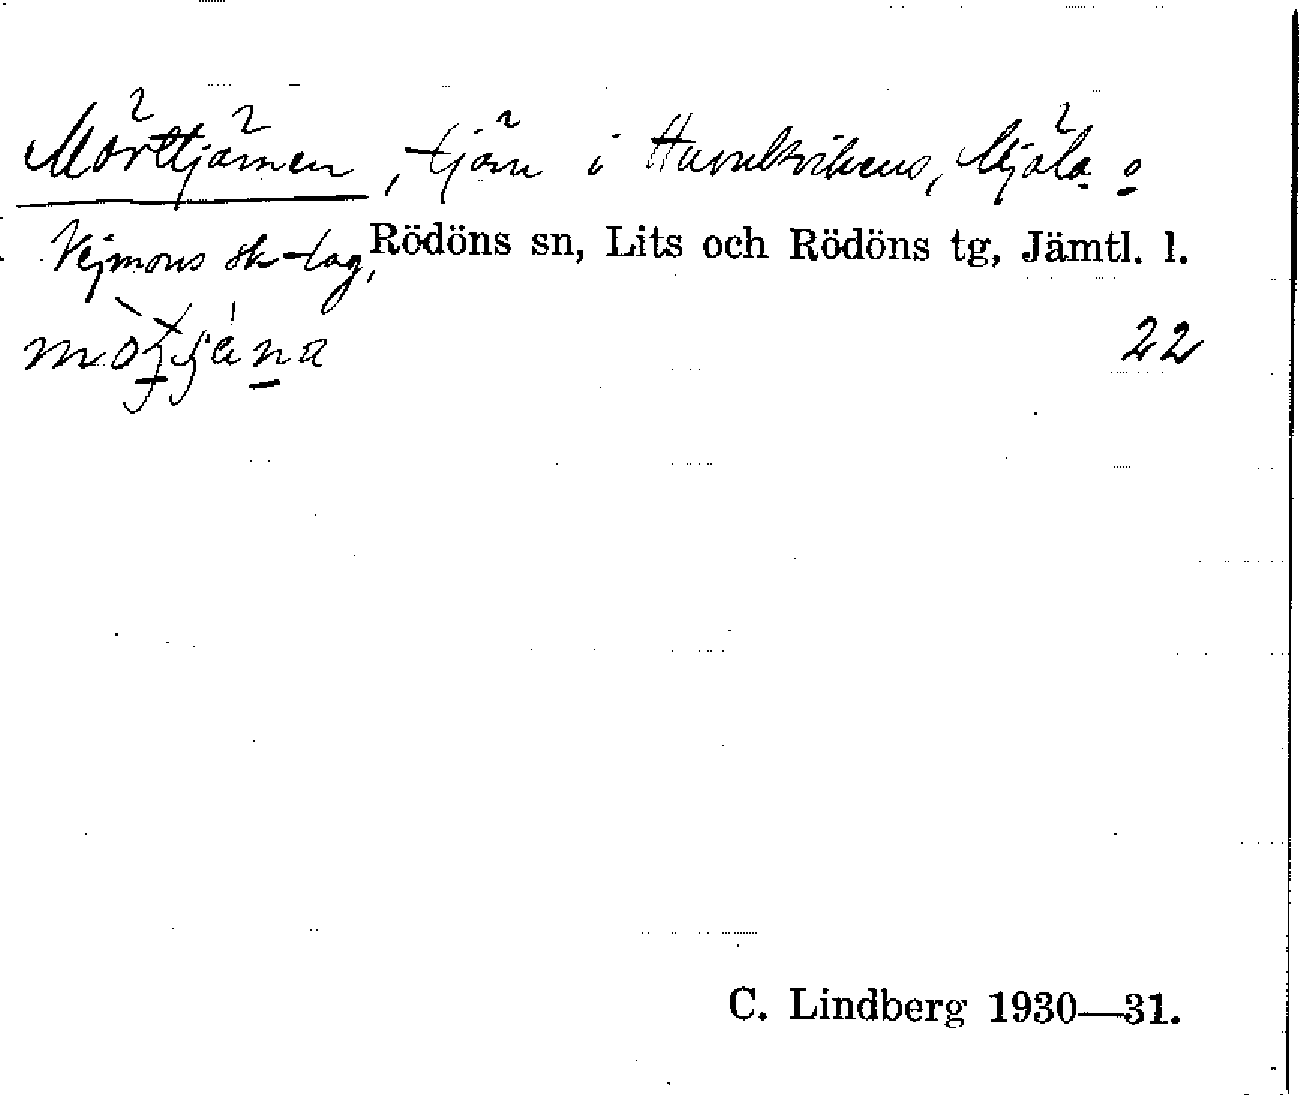 Mörttjärnen, tjärn i Havnlkvikens, Mjäla o
Vejmons sk-lag, Rödöns sn, Lits och Rödöns tg, Jämtl. l.
22
C. Lindberg 1930—31.